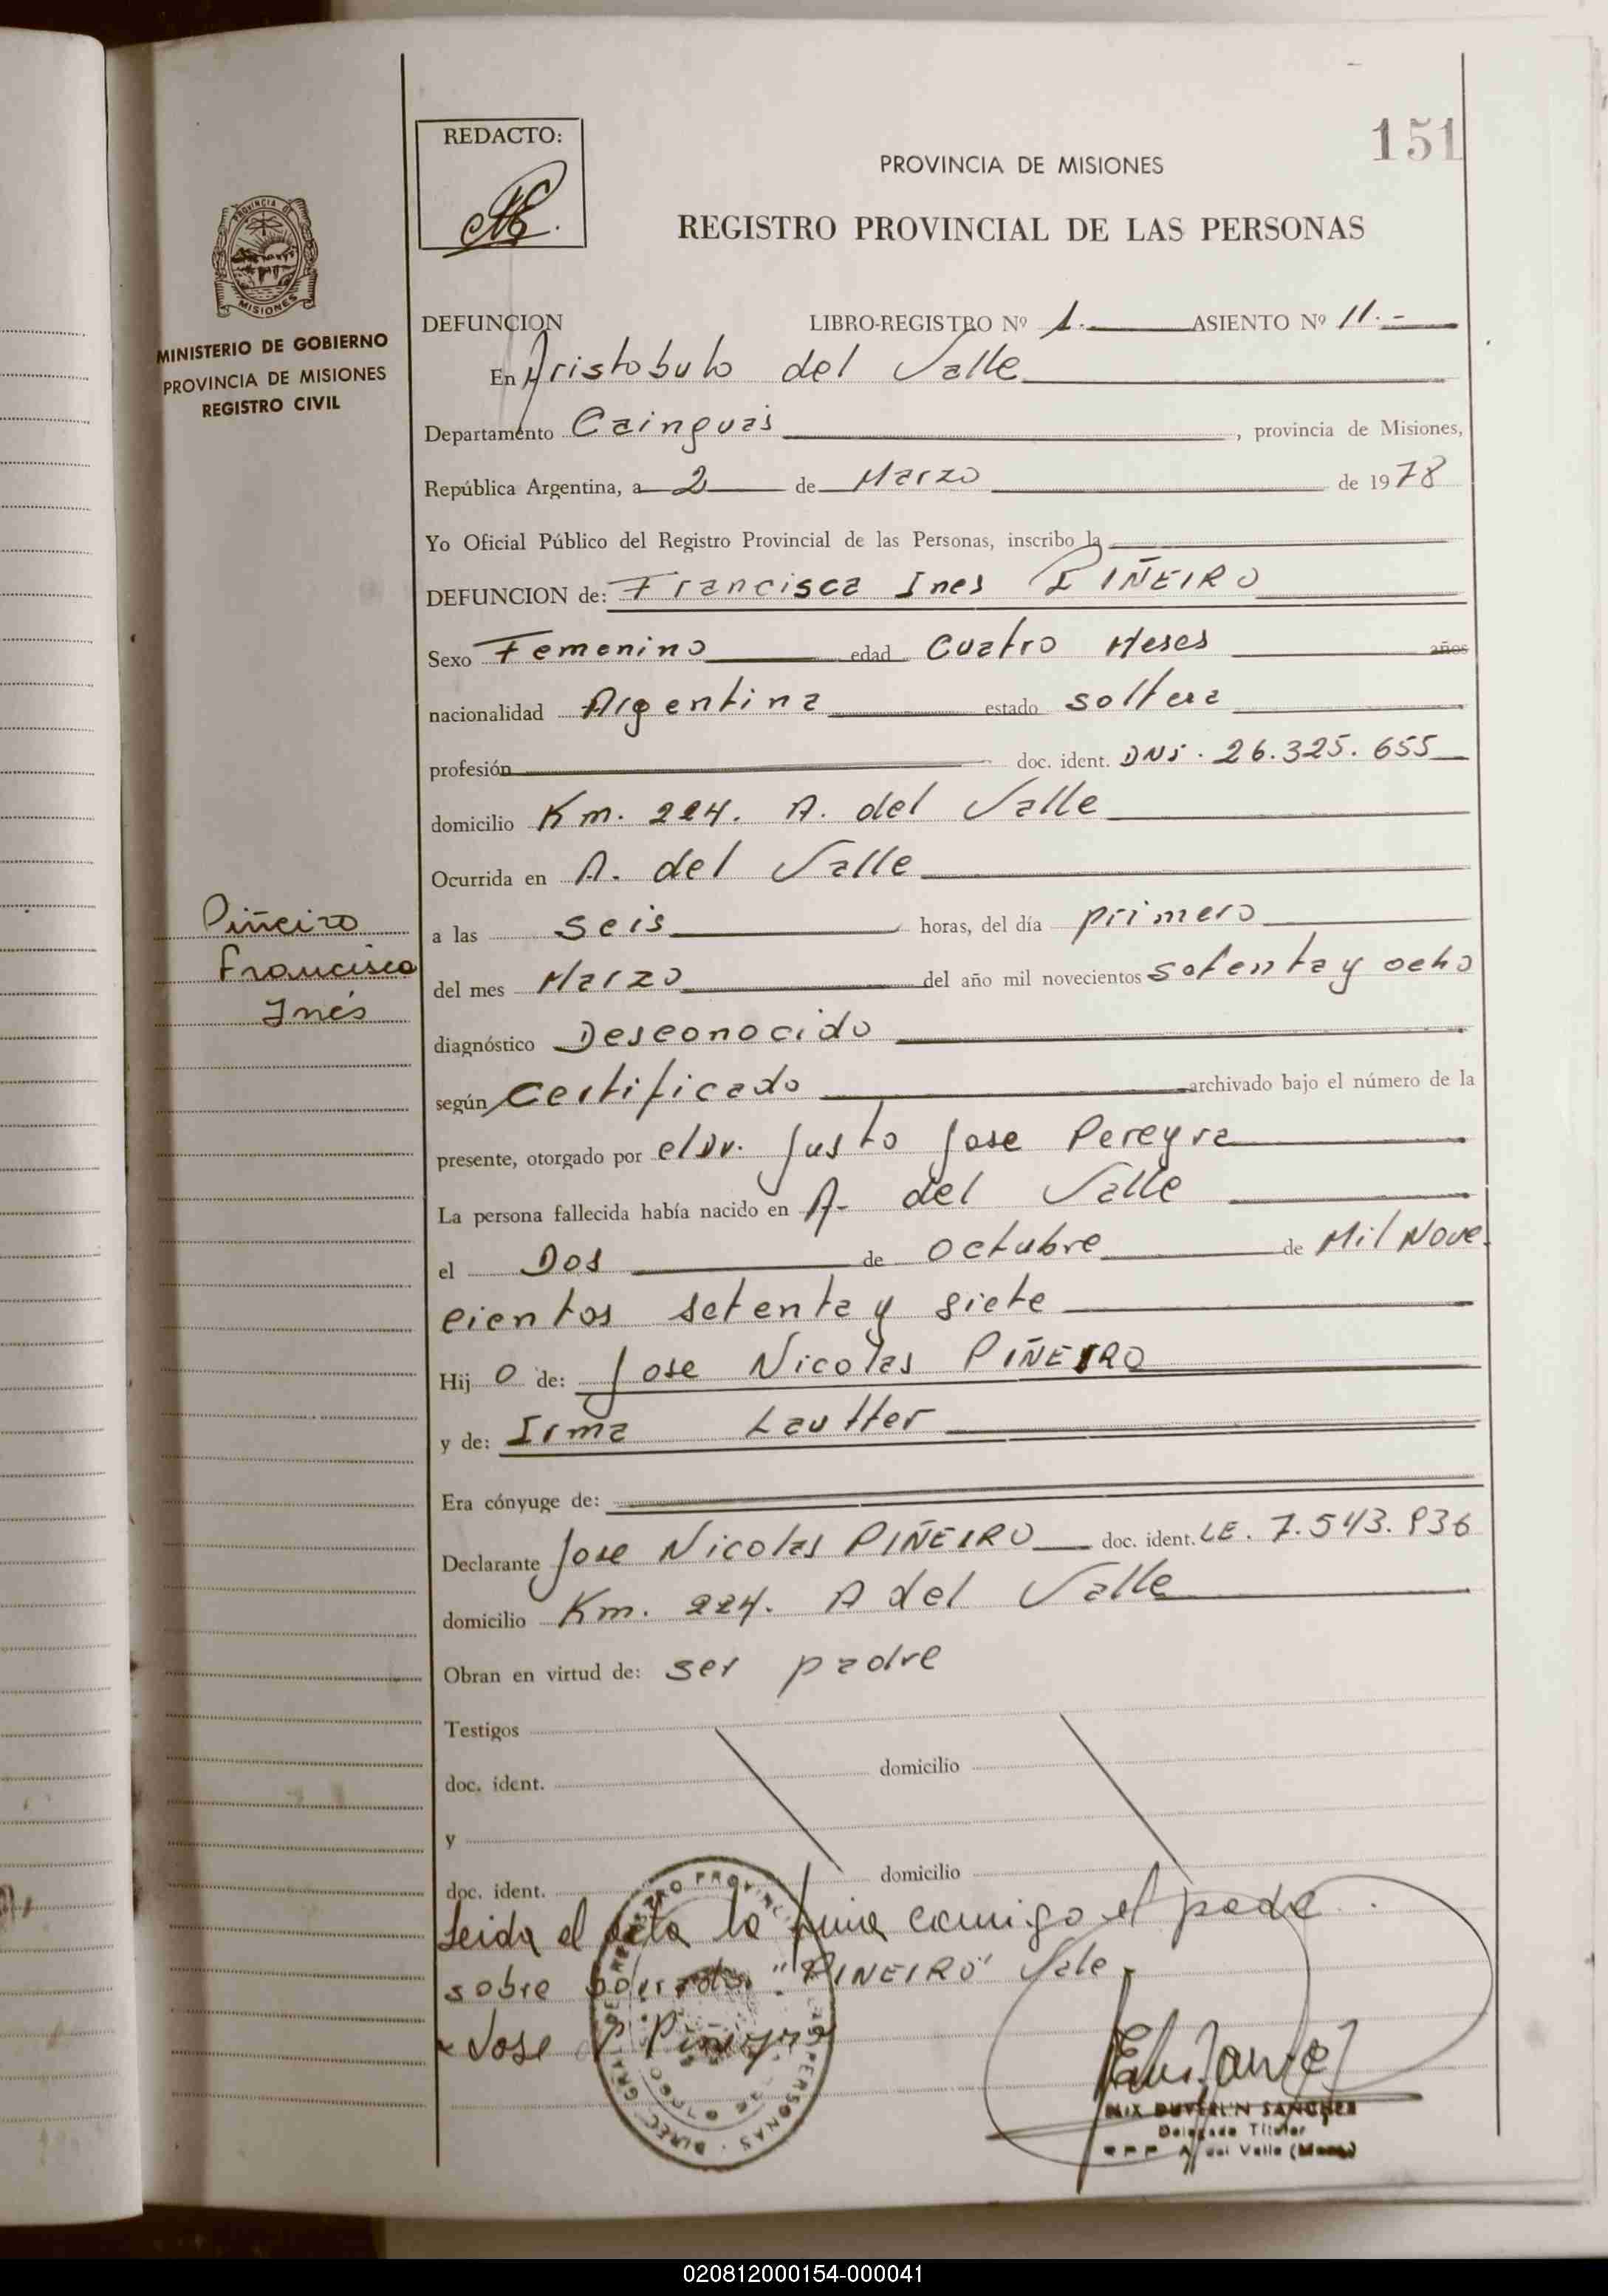 151
REDACTO:
PROVINCIA DE MISIONES
REGISTRO PROVINCIAL DE LAS PERSONAS
PROVINCIA DE
MISIONES
MINISTERIO DE GOBIERNO
PROVINCIA DE MISIONES
REGISTRO CIVIL
DEFUNCION LIBRO-REGISTRO Nº 1. ASIENTO Nº 11.-
En Aristobulo del Valle
Departamento Cainguas, provincia de Misiones,
República Argentina, a 2 de Marzo de 1978
Yo Oficial Público del Registro Provincial de las Personas, inscribo la
DEFUNCION de: Francisca Ines PIÑEIRO
Sexo Femenino edad Cuatro Meses años
nacionalidad Argentina estado soltera
profesión doc. ident. DNI. 26.325.655
domicilio Km. 224. A. del Valle
Ocurrida en A. del Valle
Piñeiro
Francisca
Inés
a las seis horas, del día primero
del mes Marzo del año mil novecientos setenta y ocho
diagnóstico Desconocido
según Certificado archivado bajo el número de la
presente, otorgado por el Dr. Justo Jose Pereyra
La persona fallecida había nacido en A. del Valle
el Dos de octubre de Mil Nove
cientos setenta y siete
Hij o de: Jose Nicolas PIÑEIRO
y de: Irma Lautter
Era cónyuge de:
Declarante Jose Nicolas PIÑEIRO doc. ident. LE. 7.543.836
domicilio Km. 224. A del Valle
Obran en virtud de: ser padre
Testigos
doc. ident. domicilio
y
doc. ident. domicilio
Leida el acta la firma conmigo el padre.
sobre borrado "PIÑEIRO" Vale
Jose Pineyro
SANCHEZ
Delegado Titular
A. del Valle
020812000154-000041